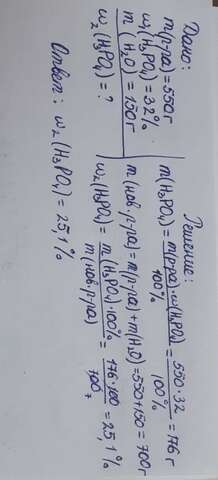 Дано:
m(р-ра)=550г
ω₁(H₃PO₄)=32%
m(H₂O)=150г
ω₂(H₃PO₄)=?
Решение:
m(H₃PO₄)=m(р-ра)·ω(H₃PO₄)/100%=550·32/100%=176г
m(нов.р-ра)=m(р-ра)+m(H₂O)=550+150=700г
ω₂(H₃PO₄)=m(H₃PO₄)·100%/m(нов.р-ра)=176·100/700=25,1%
Ответ: ω₂(H₃PO₄)=25,1%